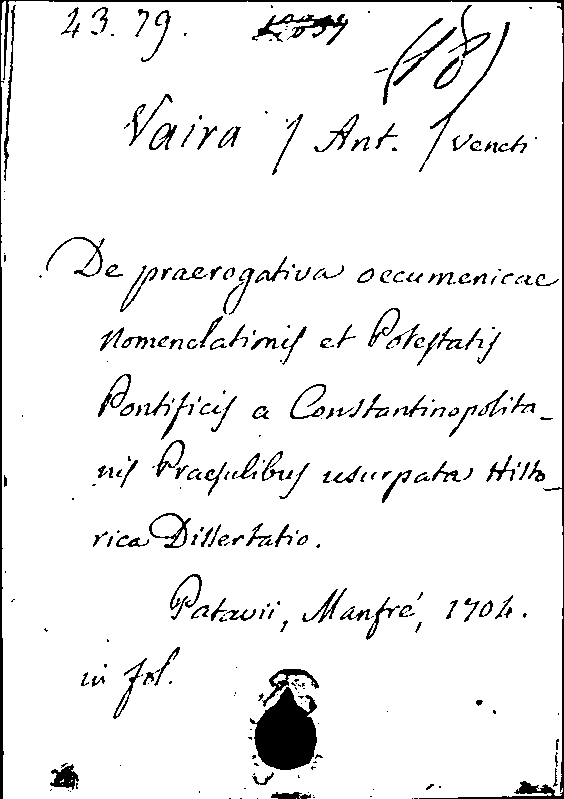 43.79.
(18)
Vaira / Ant. / Veneti
De praerogativa oecumenicae
Nomenclationis et Potestatis
Pontificis a Constantinopolita-
nis Praesulibus usurpata Histo-
rica Dissertatio.
Patavii, Manfré, 1704.
in fol.